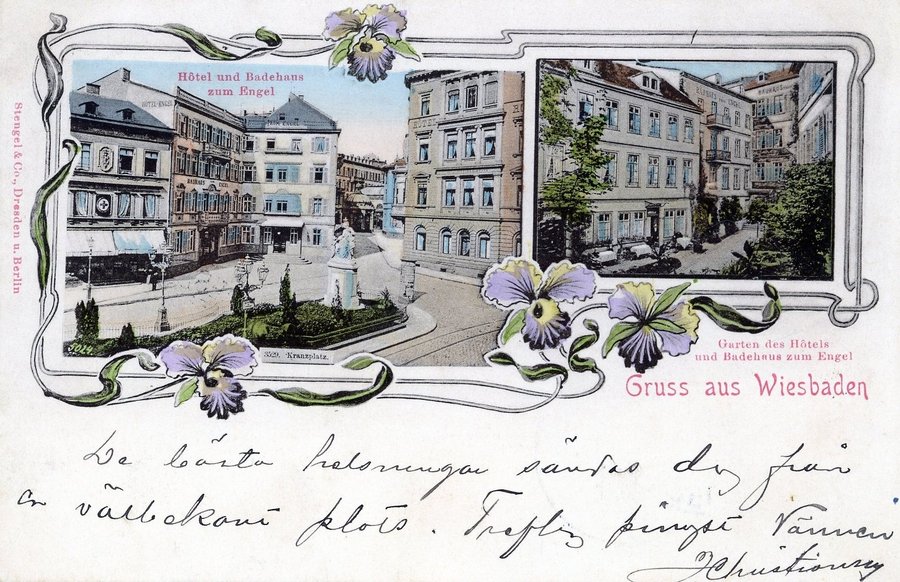 Hôtel und Badehaus
zum Engel
HÔTEL ENGEL
BADHAUS
HOTEL
3529. Kranzplatz.
Stengel & Co., Dresden u. Berlin
Garten des Hôtels
und Badehaus zum Engel
Gruss aus Wiesbaden
De bästa helsningar sändas dig från
en välbekant plats. Treflig pingst Vännen